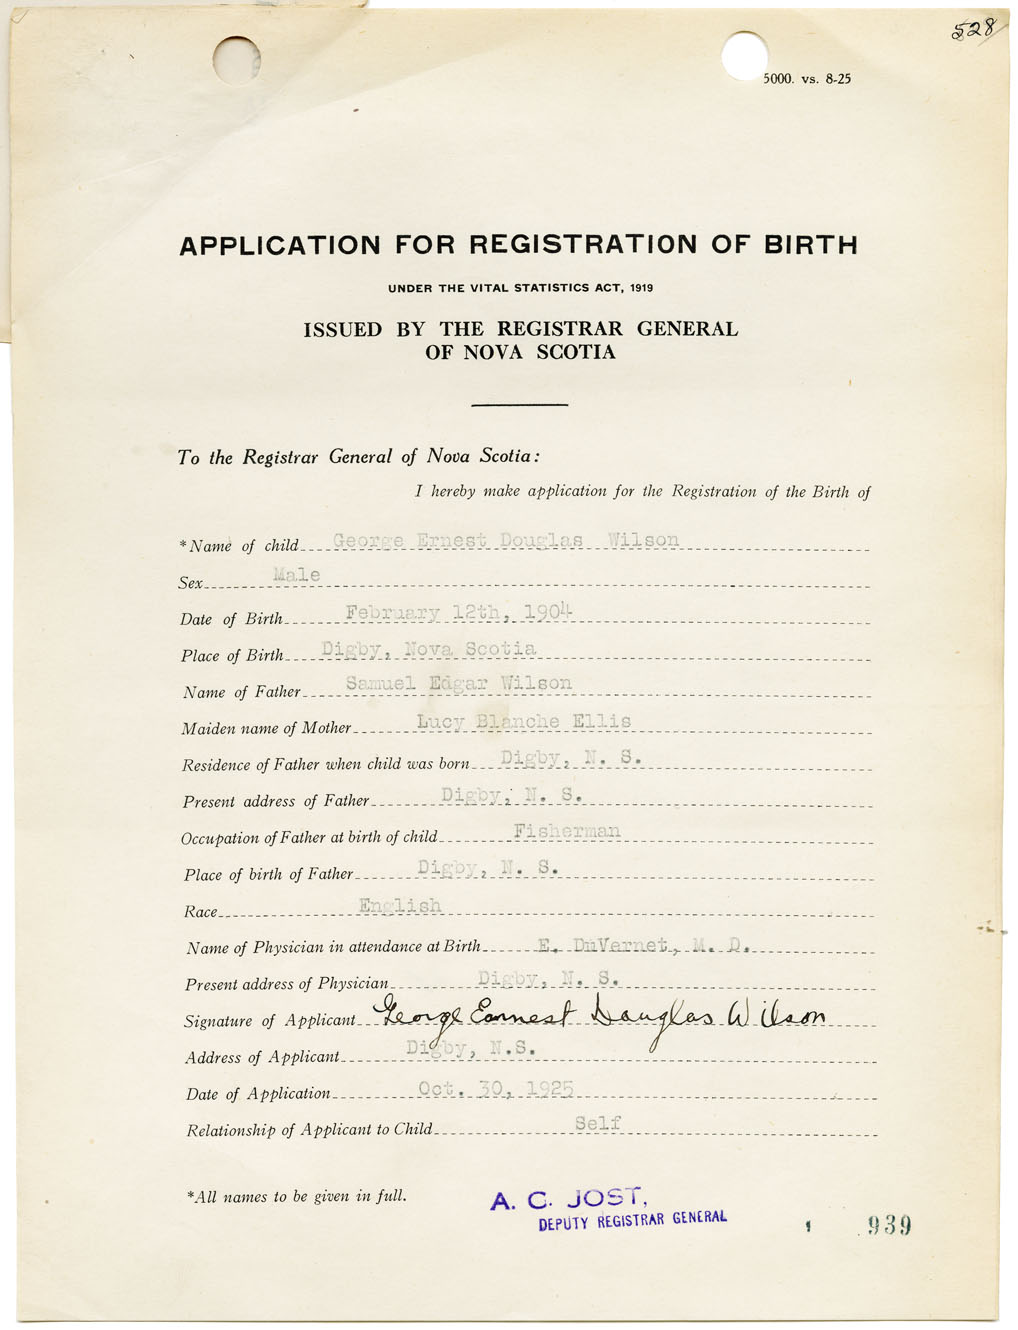 528
5000. vs. 8-25
APPLICATION FOR REGISTRATION OF BIRTH
UNDER THE VITAL STATISTICS ACT, 1919
ISSUED BY THE REGISTRAR GENERAL
OF NOVA SCOTIA
To the Registrar General of Nova Scotia:
I hereby make application for the Registration of the Birth of
*Name of child George Ernest Douglas Wilson
Sex Male
Date of Birth February 12th, 1904
Place of Birth Digby, Nova Scotia
Name of Father Samuel Edgar Wilson
Maiden name of Mother Lucy Blanche Ellis
Residence of Father when child was born Digby, N. S.
Present address of Father Digby, N. S.
Occupation of Father at birth of child Fisherman
Place of birth of Father Digby, N. S.
Race English
Name of Physician in attendance at Birth E. DuVernet, M. D.
Present address of Physician Digby, N. S.
Signature of Applicant George Earnest Douglas Wilson
Address of Applicant Digby, N.S.
Date of Application Oct. 30, 1925
Relationship of Applicant to Child Self
*All names to be given in full.
A. C. JOST,
DEPUTY REGISTRAR GENERAL
939